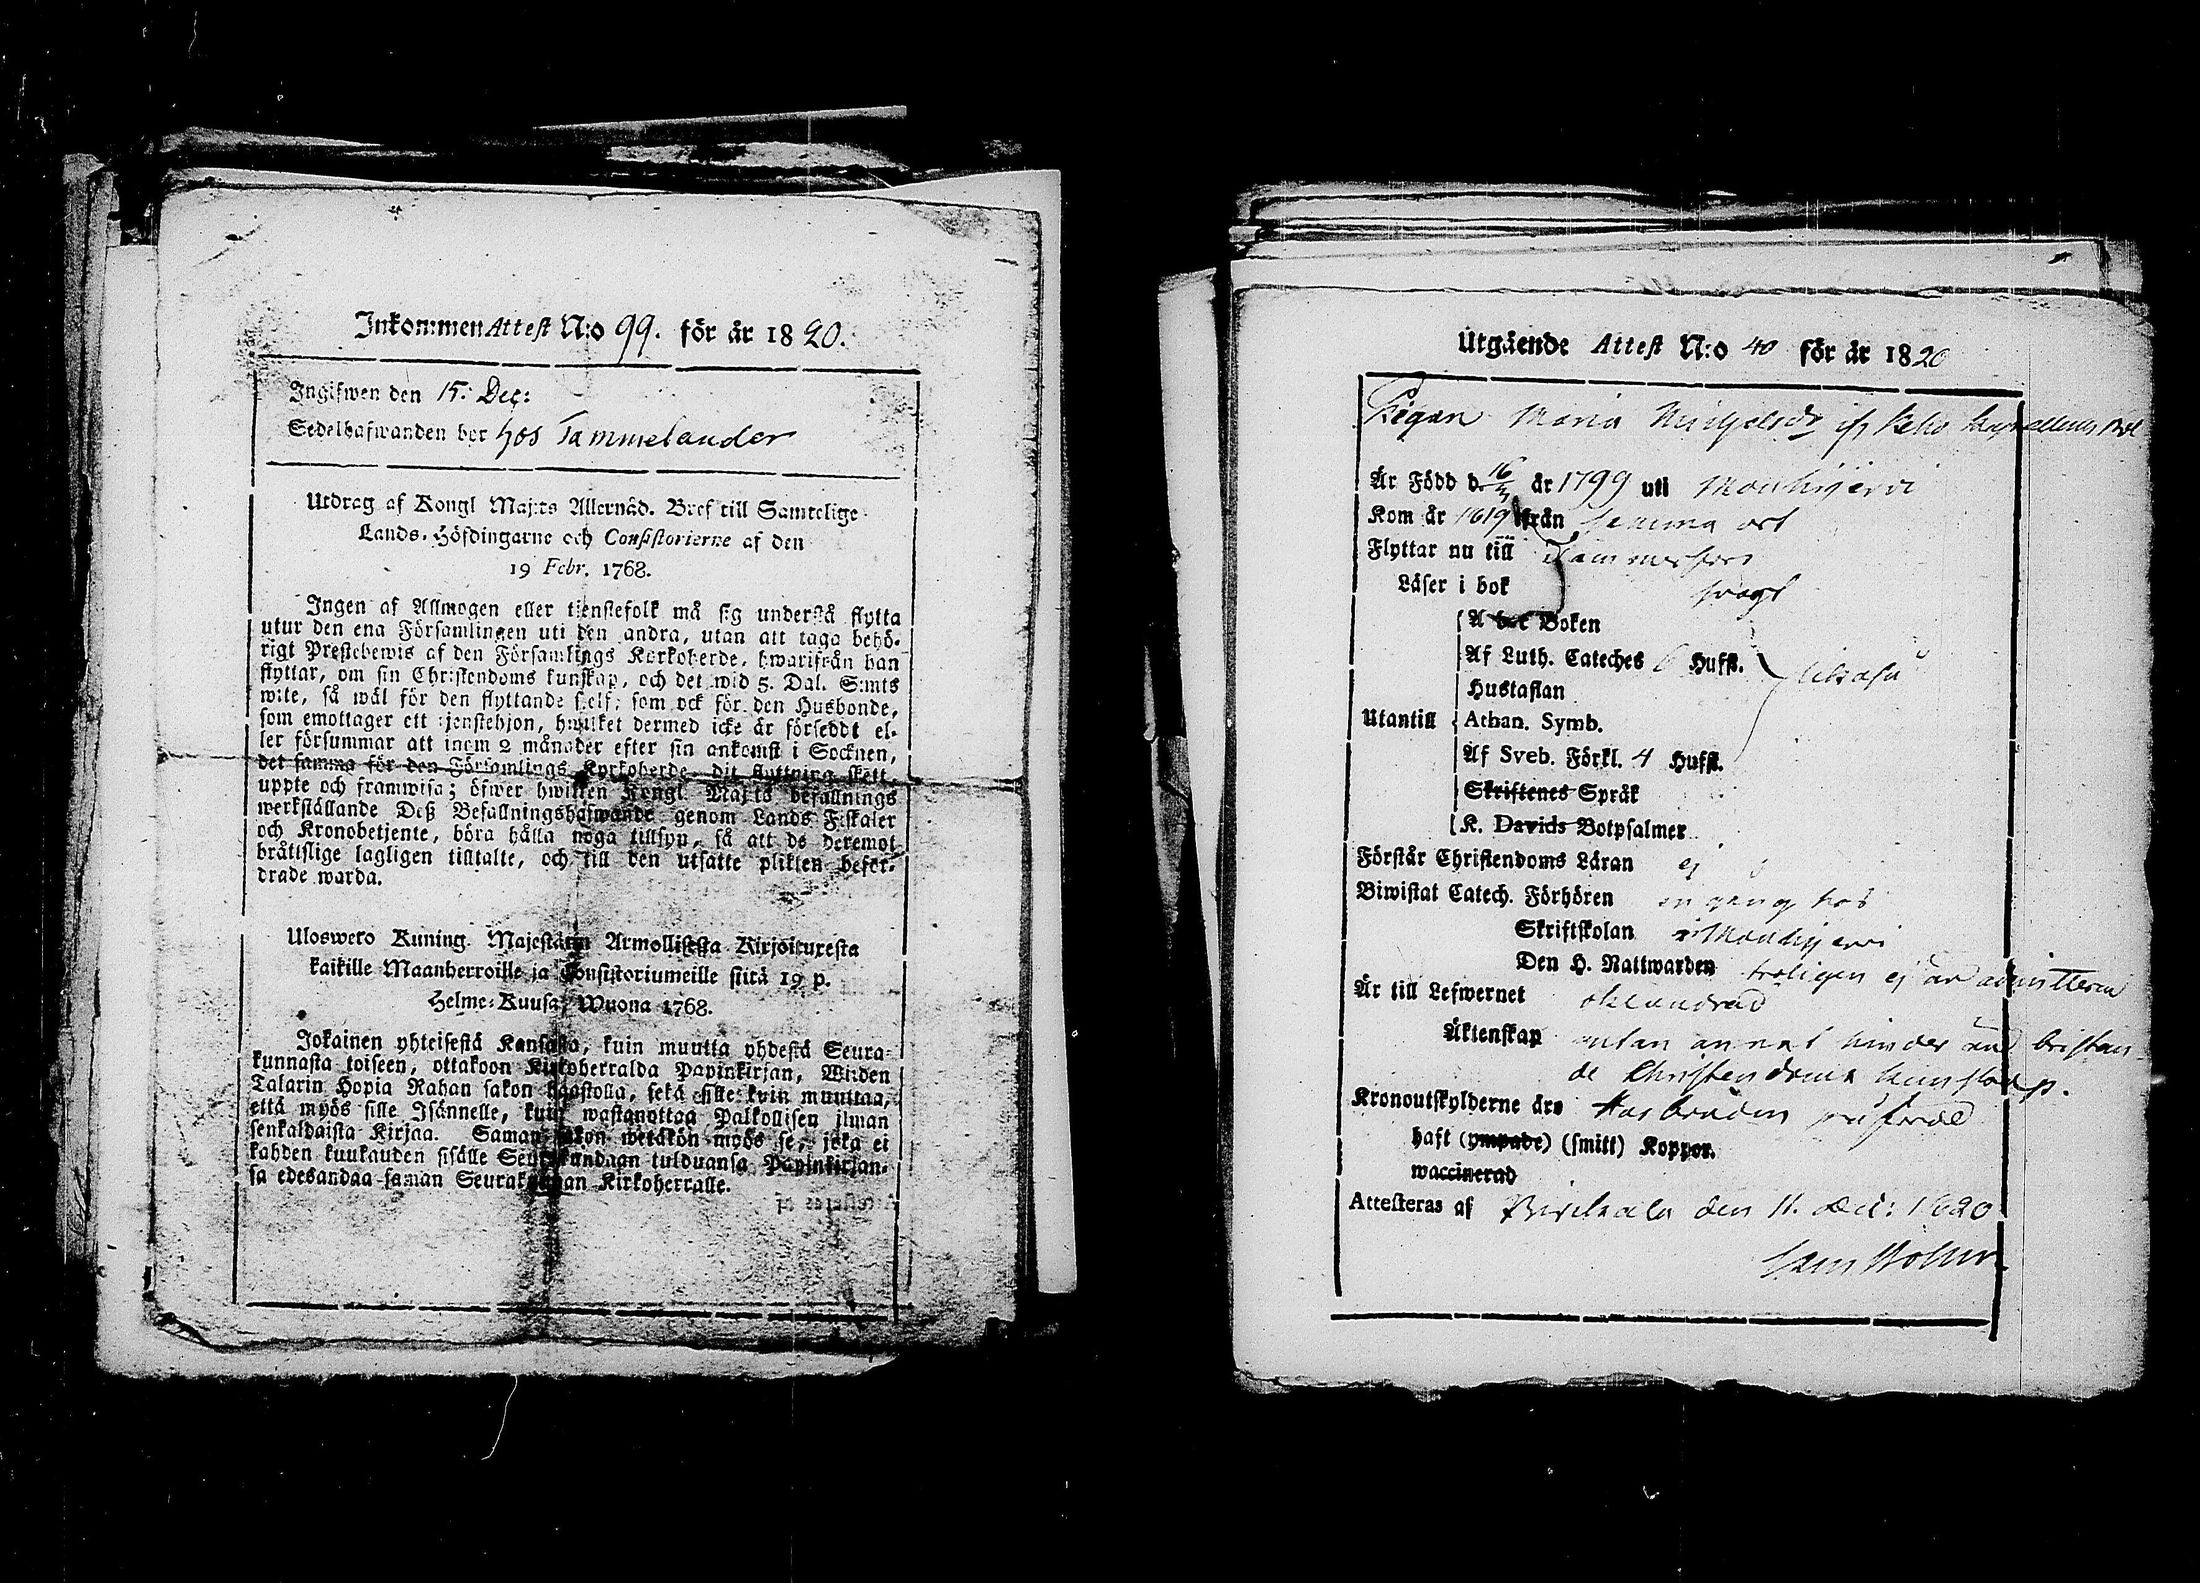 Inkommen Attest N:o 99. för år 1820.
Ingifwen den 15. Dec:
Sedelhafwanden bor hos Tammelander
Utdrag af Kongl Maj:ts Allernåd. Bref till Samtelige
Lands-Höfdingarne och Consistorierne af den
19 Febr. 1768.
Ingen af Allmogen eller tjenstefolk må sig understå flytta
utur den ena Församlingen uti den andra, utan att taga behö-
rigt Prestebewis af den Församlings Kyrkoherde, hwarifrån han
flyttar, om sin Christendoms kunskap, och det wid 5. Dal. S:mts
wite, så wäl för den flyttande sielf, som ock för den Husbonde,
som emottager ett tjenstehjon, hwilket dermed icke är försedt el-
ler försummar att inom 2 månader efter sin ankomst i Socknen,
det samma för den Församlings Kyrkoherde dit flyttning skett
uppte och framwisa; öfwer hwilken Kongl Maj:ts befallnings
werkställande Deß Befallningshafwande genom Lands Fiskaler
och Kronobetjente, böra hålla noga tillsyn, så att de deremot
bråtislige lagligen tilltalte, och till den utsatte plikten befor-
drade warda.
Ulosweto Kuning. Majestätin Armollisesta Kirjoituxesta
kaikille Maanherroille ja Consistoriumeille siitä 19 p.
Helme-Kuusa, Wuona 1768.
Jokainen yhteisestä Kansasta, kuin muutta yhdestä Seura-
kunnasta toiseen, ottakoon Kirkoherralda Papinkirjan, Wiiden
Talarin Hopia Rahan sakon haastolla, sekä sille kuin muuttaa,
että myös sille Isännelle, kuin wastanottaa Palkollisen ilman
senkaldaista Kirjaa. Saman sakon wetäkön myös se, joka ei
kahden kuukauden sisälle Seurakundaan tulduansa Papinkirjan-
sa edesandaa saman Seurakunnan Kirkoherralle.
Utgående Attest N:o 40 för år 1820
Pigan Maria Michelsdr ifr Keho Kapellens
Är Född d. 16/3 år 1799 uti Mouhijervi
Kom år 1819 ifrån samma ort
Flyttar nu till Tammerfors
Läser i bok svagt
A b c Boken
Af Luth. Cateches 6 Hufst.
Hustaflan
Utantill Athan. Symb.
Af Sveb. Förkl. 4 Hufst.
Skriftenes Språk
K. Davids Botpsalmer
Förstår Christendoms Läran ej
Biwistat Catech. Förhören en gång hos
Skriftskolan i Mouhijervi
Den H. Nattwarden troligen ej är admitterad
Är till Lefwernet oklandrad
Äktenskap utan annat hinder än bristan-
de Christendoms kunskap.
Kronoutskylderne äro Husbonden påförde
haft (ympade) (smitt) Koppor.
waccinerad
Attesteras af Birckala den 11. Dec: 1820